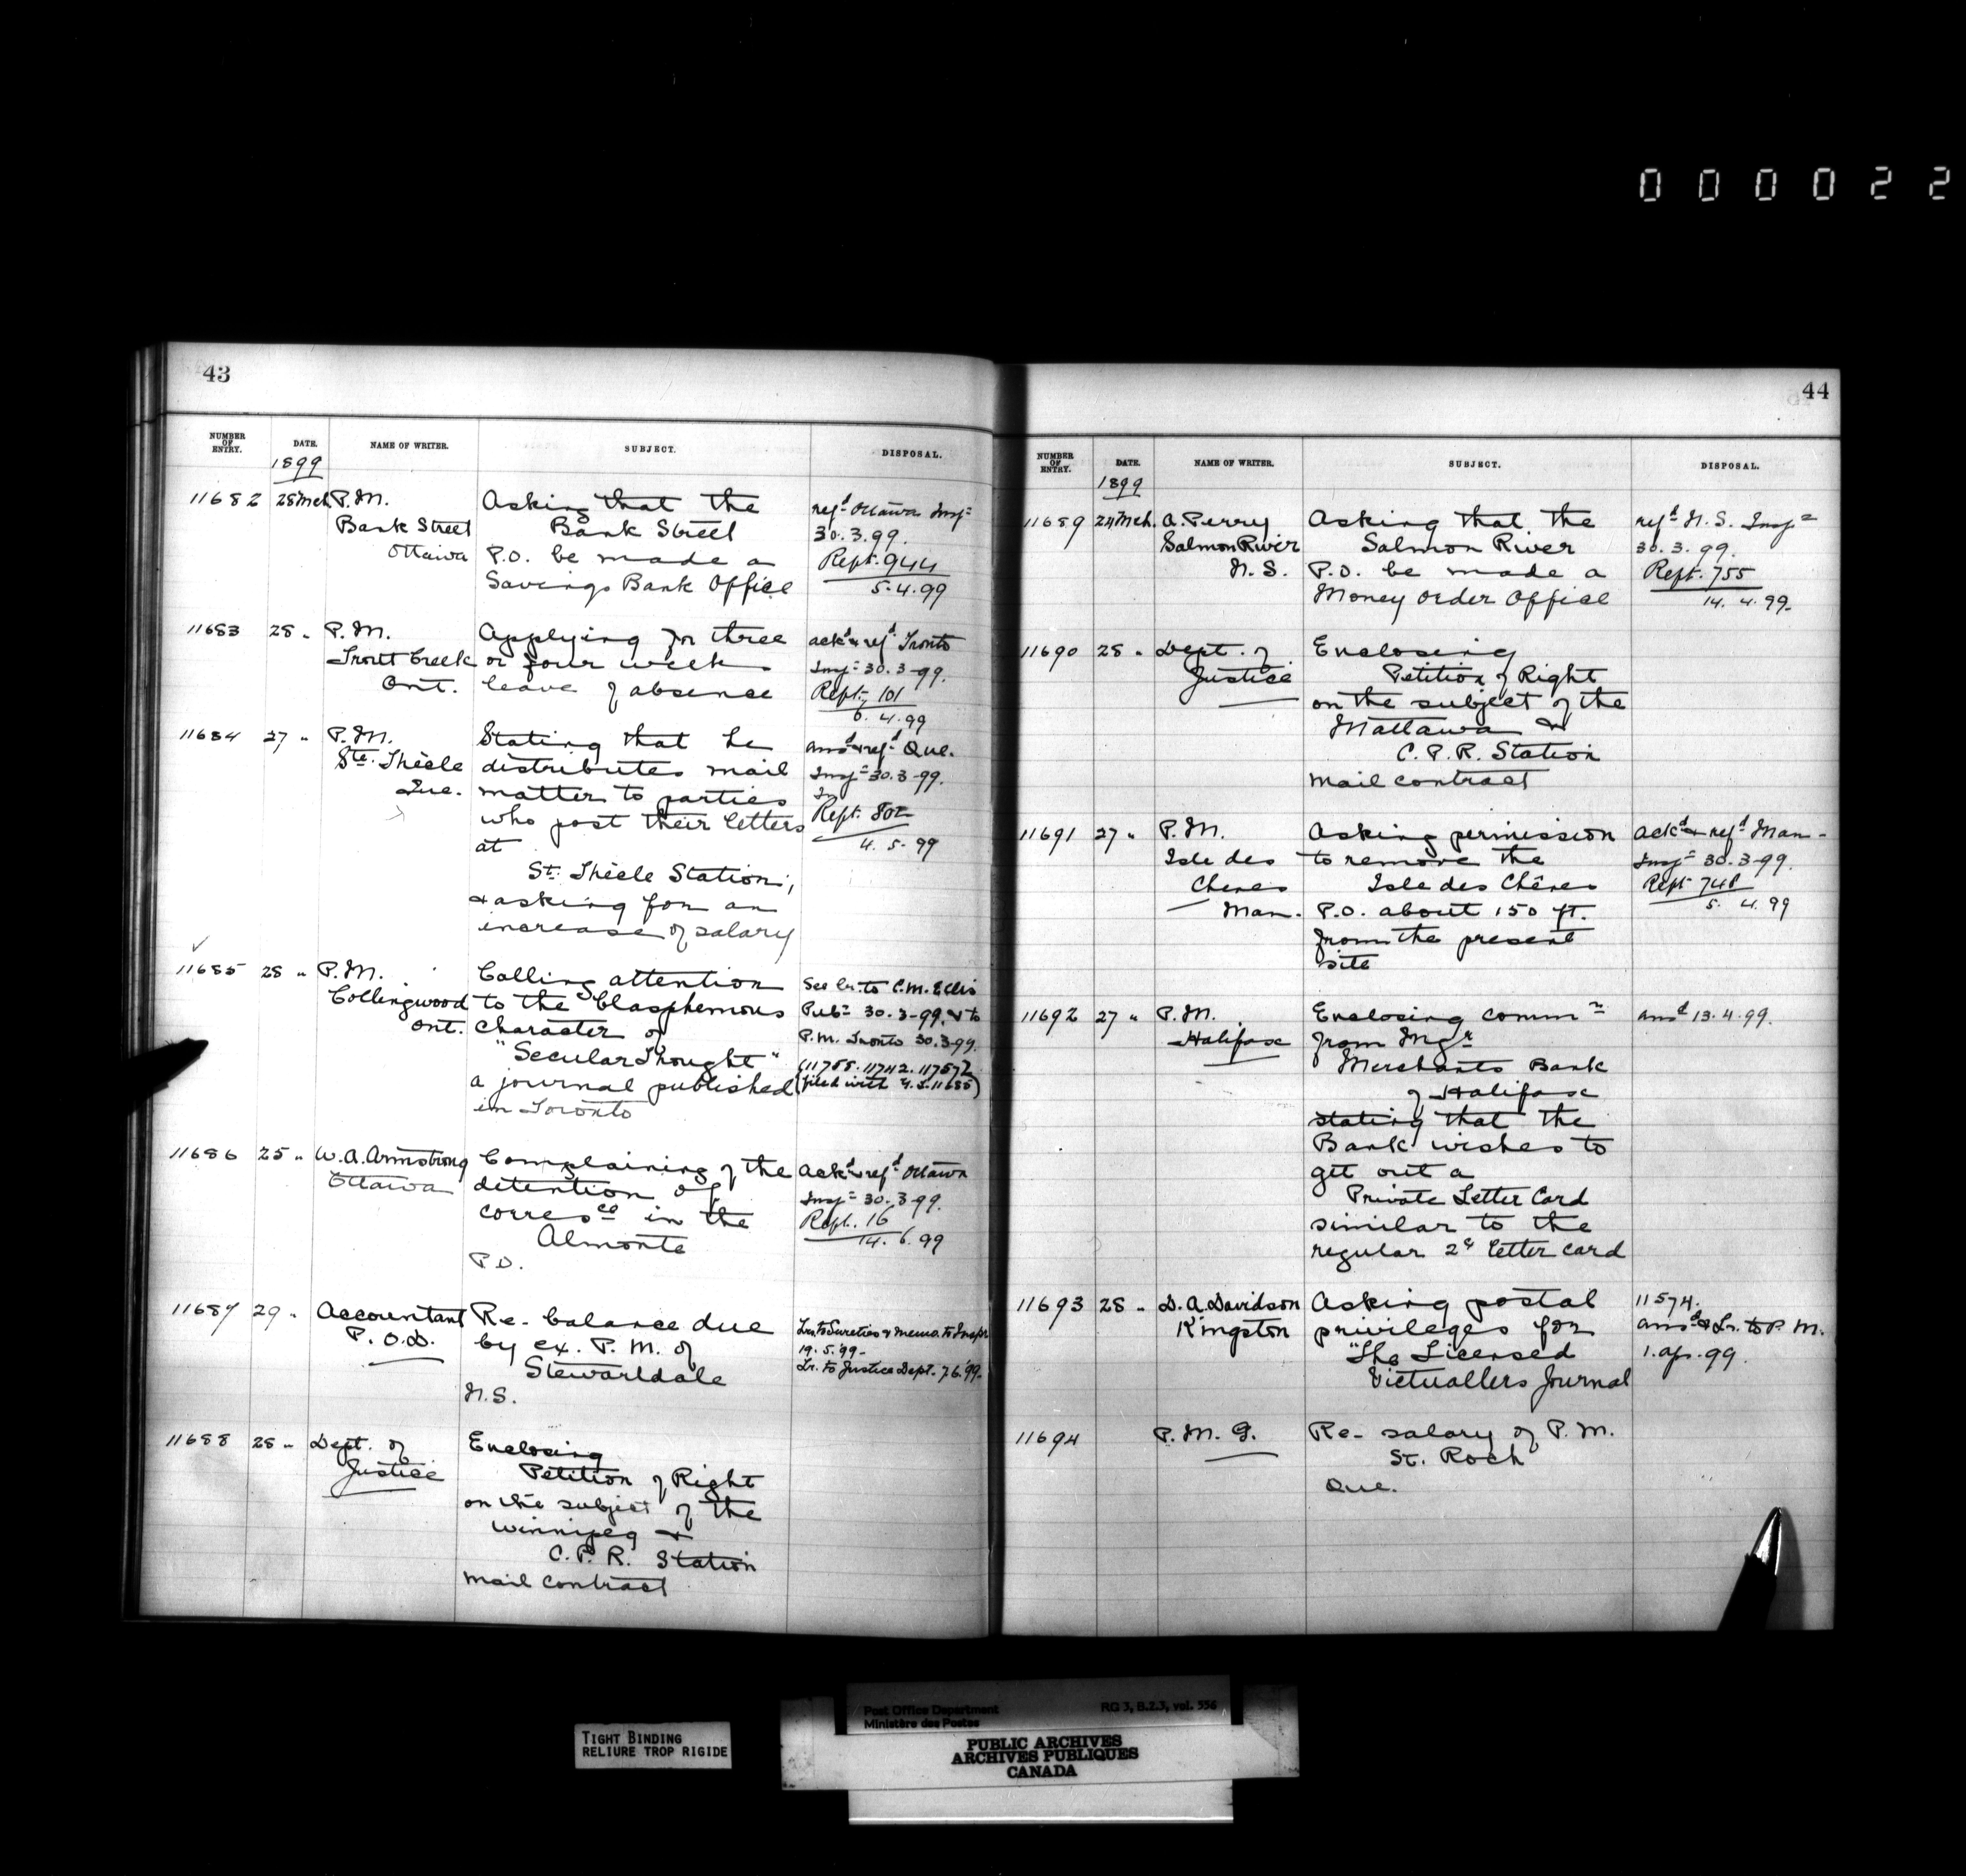 000022
43
NUMBER OF ENTRY. DATE. NAME OF WRITER. SUBJECT. DISPOSAL.
1899
11682 28 Mch P.M. Asking that the refd Ottawa Inspr
Bank Street Bank Street 30.3.99.
Ottawa P.O. be made a Rept. 944
Savings Bank Office 5.4.99
11683 28 " P.M. Applying for three ackd & refd Tronto
Trout Creek or four weeks Inspr 30.3.99.
Ont. leave of absence Rept. 101
6.4.99
11684 27 " P.M. Stating that he ansd & refd Que.
Ste. Thècle distributes mail Inspr 30.3.99.
Que. matter to parties
who post their letters Rept. 802
at 4.5.99
St. Thècle Station,
& asking for an
increase of salary
11685 28 " P.M. Calling attention See lr. to C.M. Ellis
Collingwood to the blasphemous Pubr 30.3.99, & to
Ont. character of P.M. Tronto 30.3.99.
"Secular Thought" (11755. 11742. 11757½
a journal published filed with 4.S. 11685)
in Toronto
11686 25 " W.A. Armstrong Complaining of the Ackd & refd Ottawa
Ottawa detention of Inspr 30.3.99.
corresce in the Rept. 16
Almonte 14.6.99
P.O.
11687 29 " Accountant Re- balance due Lrs. to Sureties & Memo. to Inspr
P.O.D. by ex. P.M. of 19.5.99-
Stewartdale Lr. to Justice Dept. 7.6.'99.
N.S.
11688 28 " Dept. of Enclosing
Justice Petition of Right
on the subject of the
Winnipeg &
C.P.R. Station
mail contract
44
NUMBER OF ENTRY. DATE. NAME OF WRITER. SUBJECT. DISPOSAL.
1899
11689 24 Mch. A. Perry Asking that the refd N.S. Inspr
Salmon River Salmon River 30.3.99.
N.S. P.O. be made a Rept. 755
Money Order Office 14.4.99.
11690 28 " Dept. of Enclosing
Justice Petition of Right
on the subject of the
Mattawa &
C.P.R. Station
mail contract
11691 27 " P.M. Asking permission Ackd & refd Man-
Isle des to remove the Inspr 30.3.99.
Chenes Isle des Chênes Rept 748
Man. P.O. about 150 ft. 5.4.99
from the present
site
11692 27 " P.M. Enclosing commn ansd 13.4.99.
Halifax from Mgr
Merchants Bank
of Halifax
stating that the
Bank wishes to
get out a
Private Letter Card
similar to the
regular 2¢ letter card
11693 28 " D.A. Davidson Asking postal 11574.
Kingston privileges for ansd & Lr. to P.M.
"The Licensed 1. Ap. 99.
Victuallers Journal
11694 P.M.G. Re- salary of P.M.
St. Roch
Que.
TIGHT BINDING
RELIURE TROP RIGIDE
Post Office Department RG 3, B.2.3, vol. 556
Ministère des Postes
PUBLIC ARCHIVES
ARCHIVES PUBLIQUES
CANADA